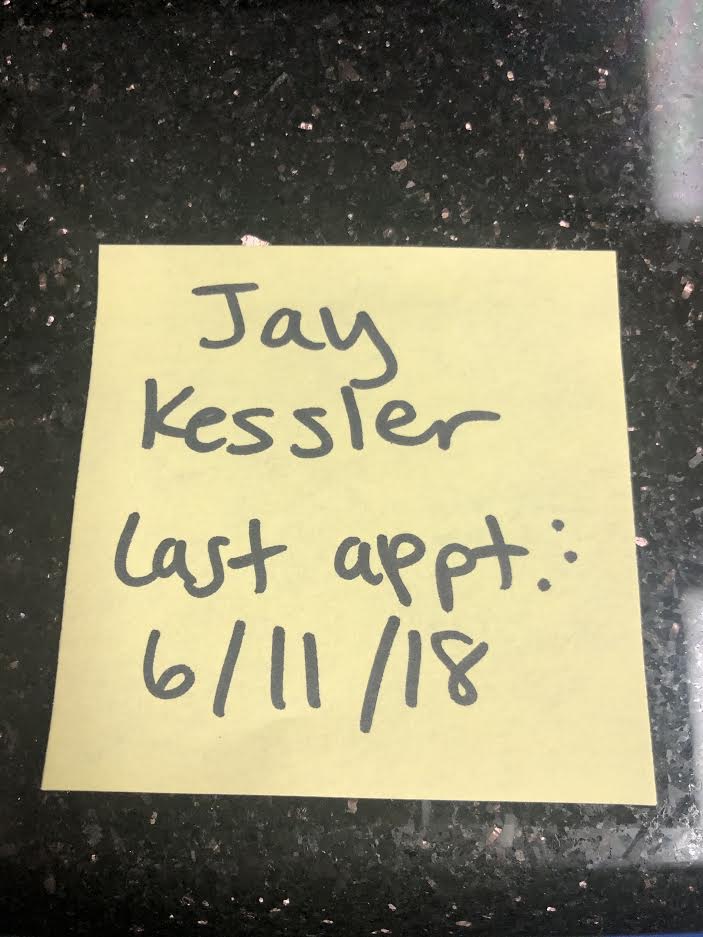 Jay
Kessler
Last appt.:
6/11/18